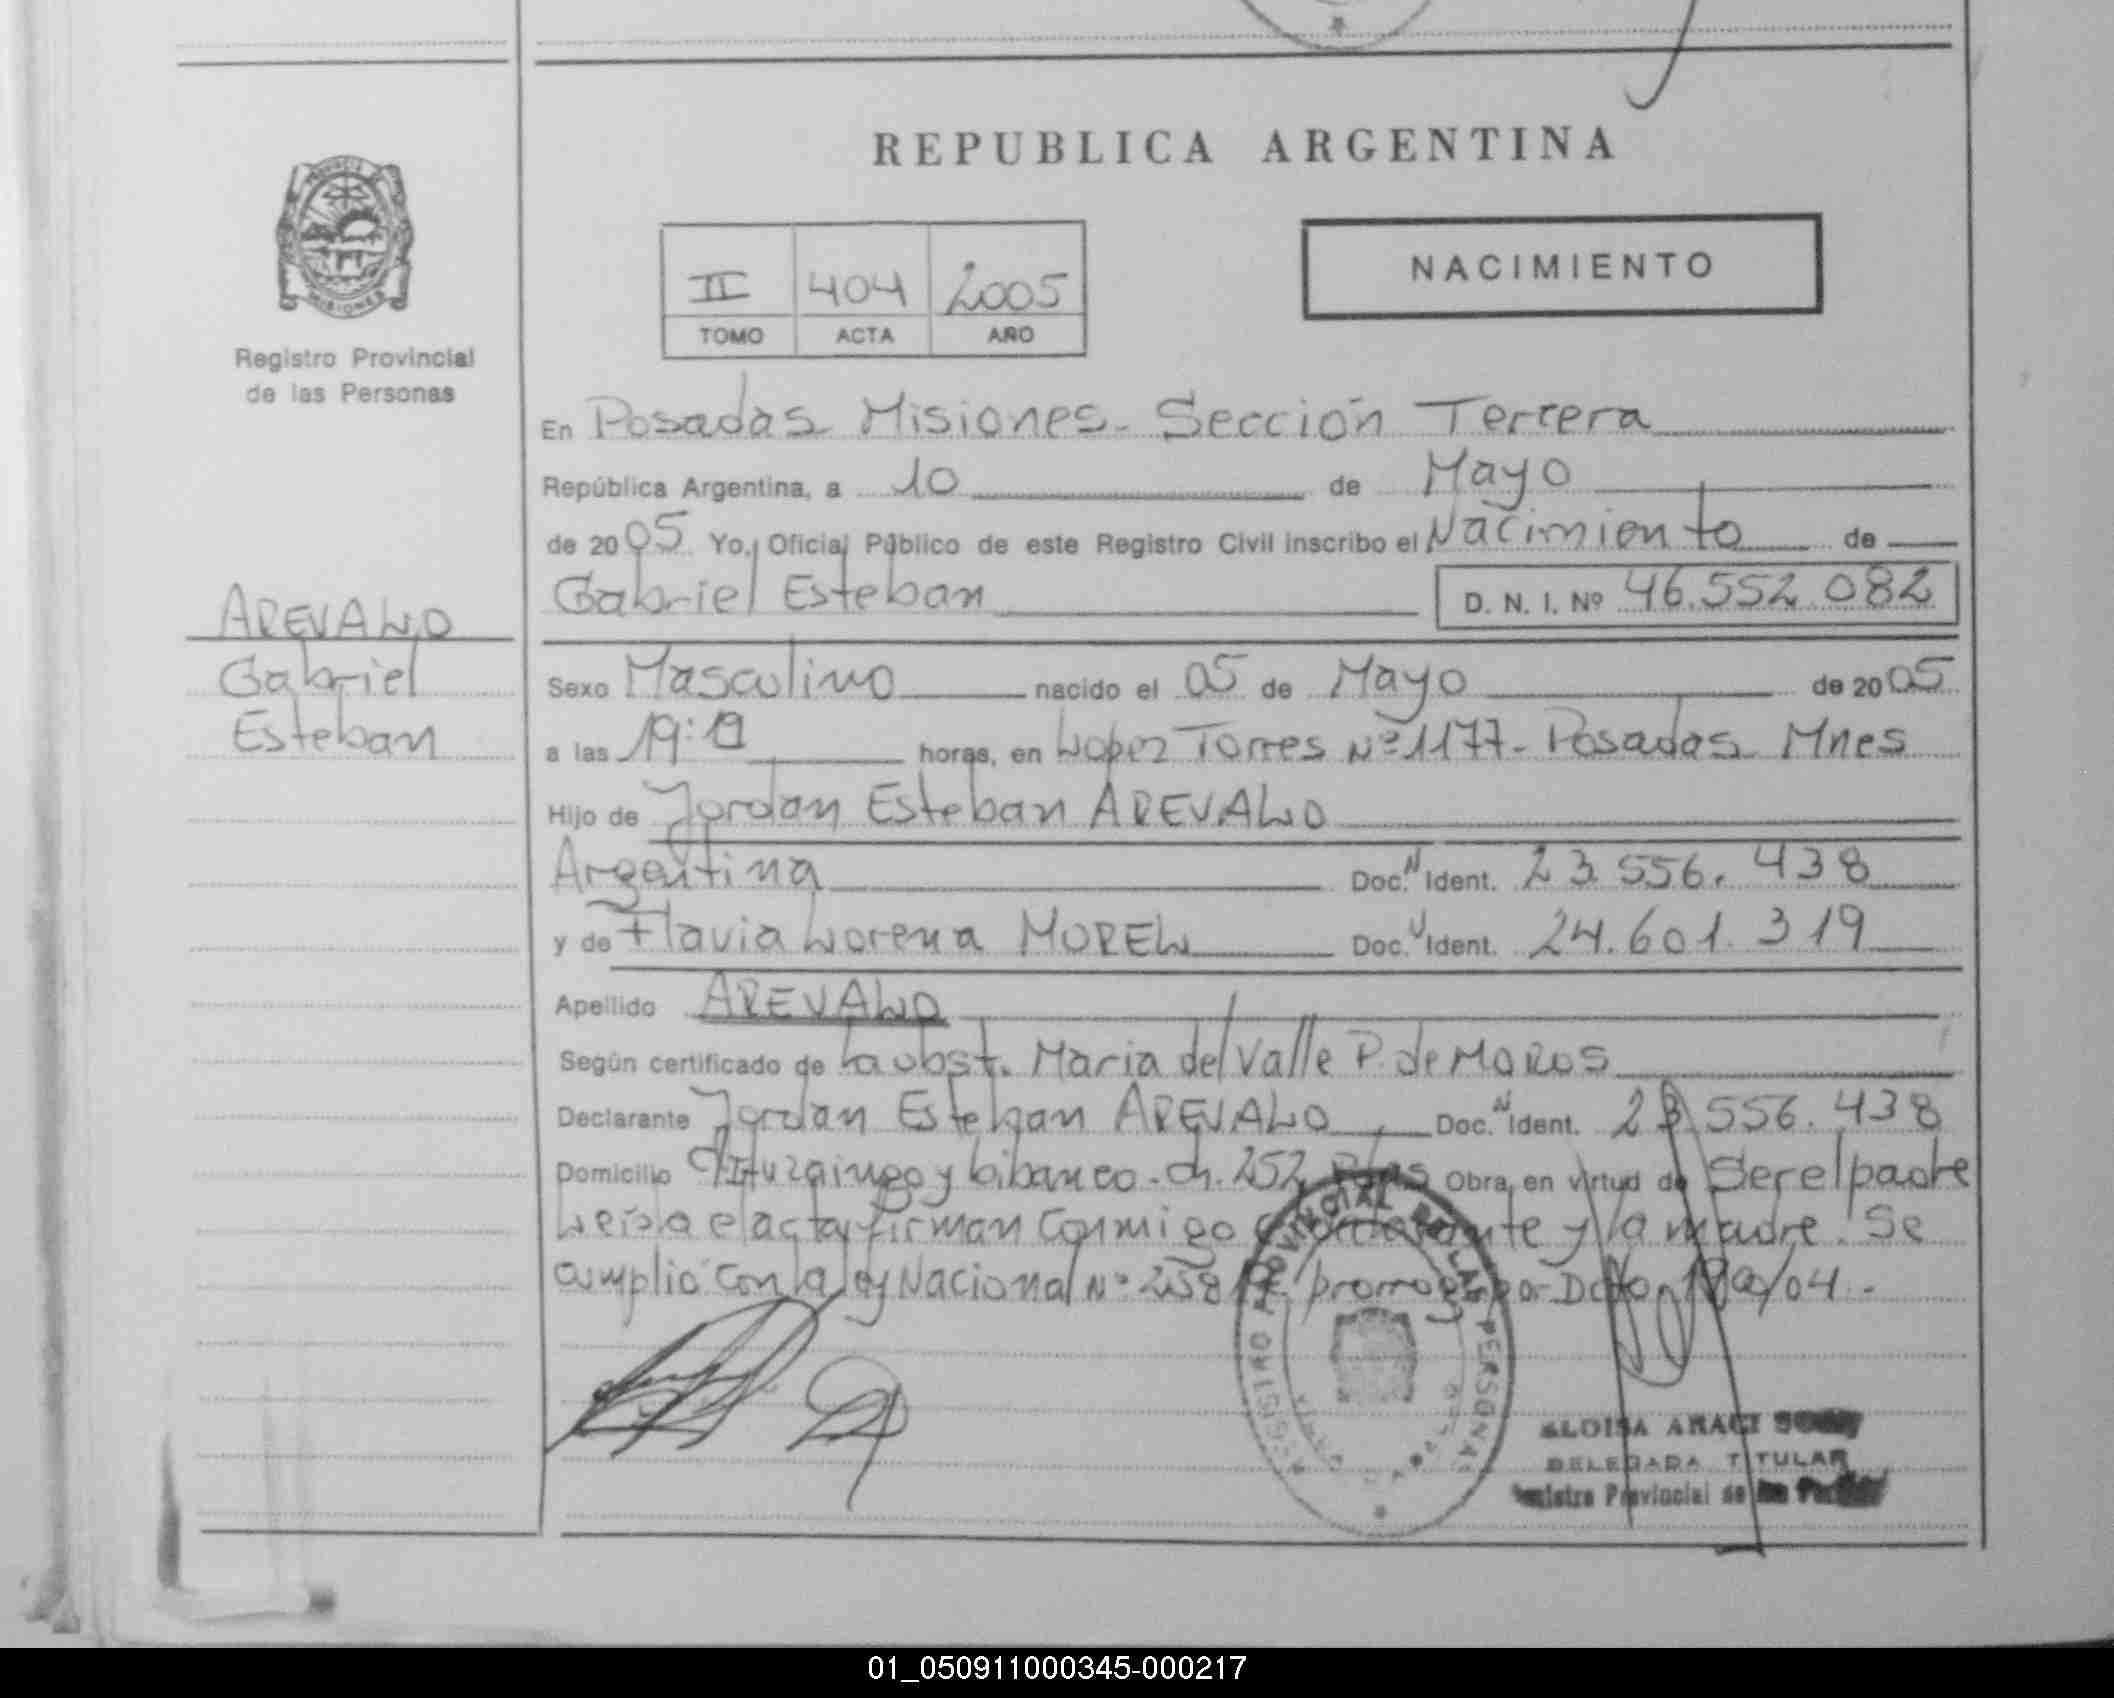 REPUBLICA ARGENTINA
NACIMIENTO
II 404 2005
TOMO ACTA AÑO
PROVINCIA DE
MISIONES
Registro Provincial
de las Personas
En Posadas Misiones - Sección Tercera
República Argentina, a 10 de Mayo
de 2005 Yo, Oficial Público de este Registro Civil inscribo el Nacimiento de
Gabriel Esteban D. N. I. Nº 46.552.082
AREVALO
Gabriel
Esteban
Sexo Masculino nacido el 05 de Mayo de 2005
a las 19:19 horas, en Lopez Torres Nº 1177 - Posadas Mnes
Hijo de Jordan Esteban AREVALO
Argentina Doc. N Ident. 23.556.438
y de Flavia Lorena MOREL Doc. Ident. 24.601.319
Apellido AREVALO
Según certificado de la obst. Maria del Valle P. de
Declarante Jordan Esteban AREVALO Doc. N Ident. 23.556.438
Domicilio Ituzaingo y Libaneo - Ch. 252 Pdas Obra en virtud de Ser el padre
Leida el acta firman Conmigo el declarante y la madre. Se
cumplio con la ley Nacional Nº por Dcto /04.-
REGISTRO PROVINCIAL DE LAS PERSONAS
DELEGADA TITULAR
Registro Provincial de las
01_050911000345-000217